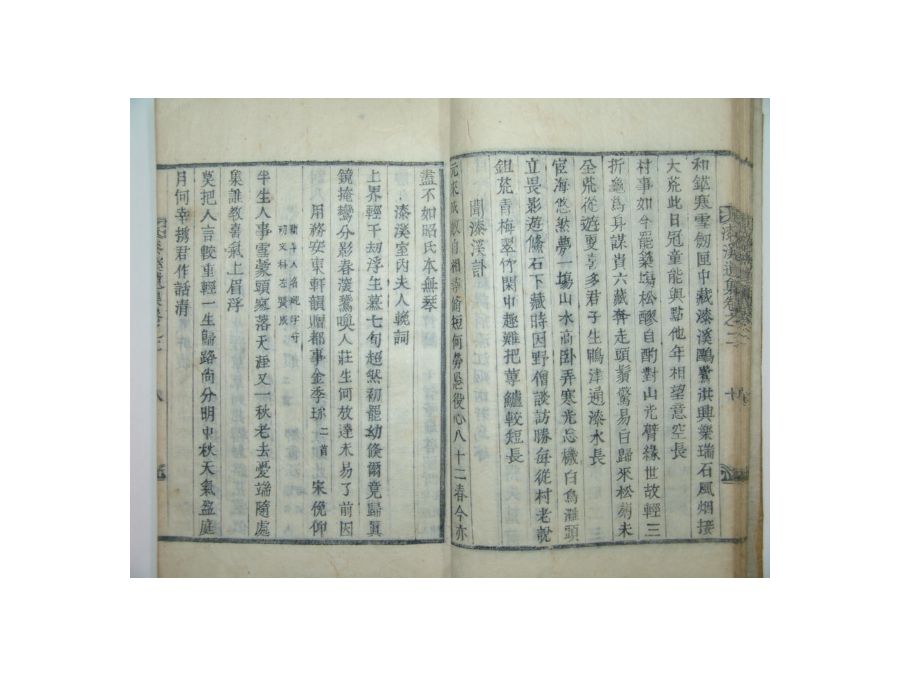 漆溪遺集卷之二
和鋒寒雪劒匣中藏漆溪鷗鷺淇興樂瑞石風烟接
大荒此日冠童能與點他年相望意空長
村事如牟罷築塲松醪自酌對山光臂緣世故輕三
折龜爲身謀肯六藏奔走頭鬚驚易白歸來松菊未
全荒從遊更喜多君子生鴨津通漆水長
宦海悠悠夢一塲山水高卧弄寒光忘機白鳥灘頭
立畏影遊鯈石下藏時因野僧談訪勝每從村老說
鉏荒青梅翠竹閑中趣難把蓴鱸較短長
聞漆溪訃
元來 自相 短何勞 役心八十二春今亦
盡不如昭氏本無琴
漆溪室內夫人輓詞
上界輕千刼浮生慕七旬超然初罷幼倏爾竟歸眞
鏡掩鸞分影春漢鶩喚人莊生何放達未易了前因
用務安東軒韻贈都事金季珎二首 宋俛仰
初文科左贊成
半生人事雪蒙頭寥落天涯又一秋老去愛端隨處
集誰教喜氣上眉浮
莫把人言較重輕一生歸路尙分明中秋天氣盈庭
月何幸携君作話清